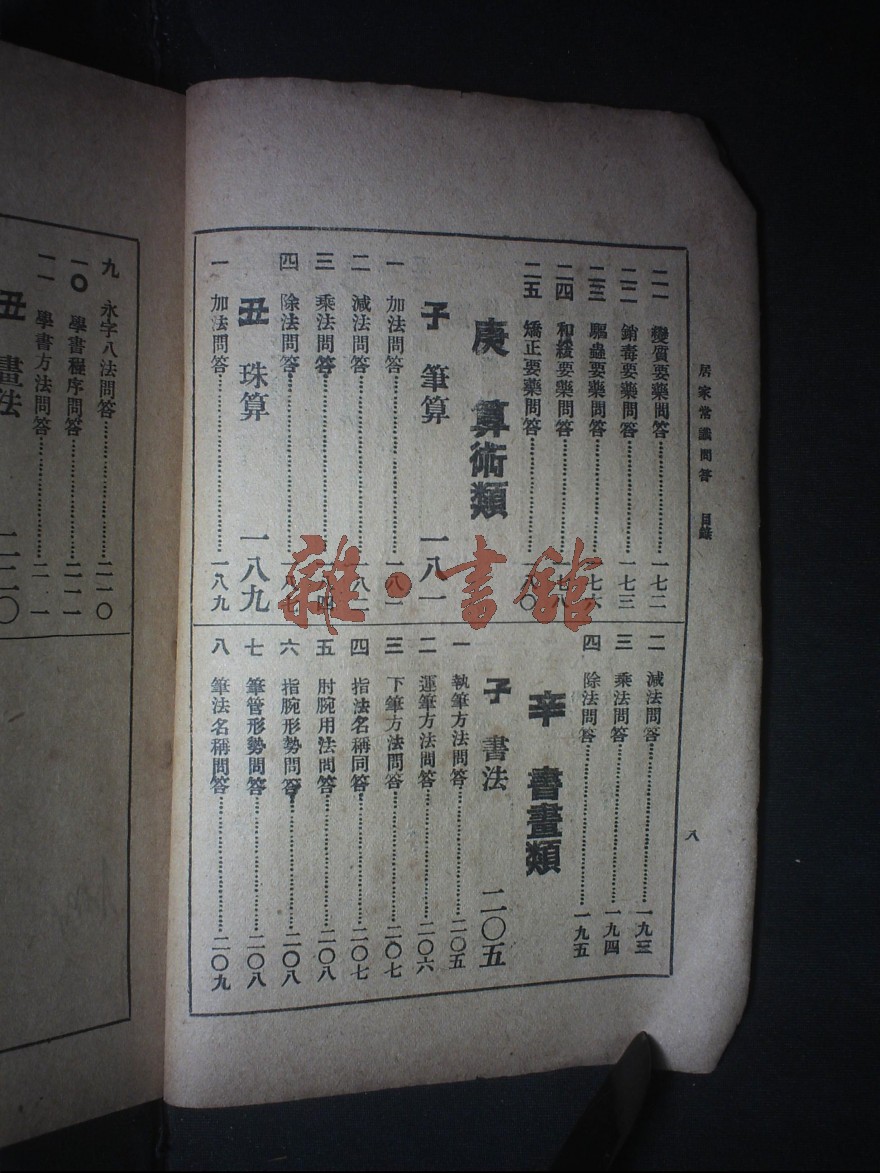 居家常識問答　目錄
八
二一　變質要藥問答……一七二
二二　銷毒要藥問答……一七三
二三　驅蟲要藥問答……一七六
二四　和緩要藥問答……一七八
二五　矯正要藥問答……一八〇
庚　算術類
子　筆算　一八一
一　加法問答……一八一
二　減法問答……一八二
三　乘法問答……一八四
四　除法問答……一八七
丑　珠算　一八九
一　加法問答……一八九
二　減法問答……一九三
三　乘法問答……一九四
四　除法問答……一九五
辛　書畫類
子　書法　二〇五
一　執筆方法問答……二〇五
二　運筆方法問答……二〇六
三　下筆方法問答……二〇七
四　指法名稱同答……二〇七
五　肘腕用法問答……二〇八
六　指腕形勢問答……二〇八
七　筆管形勢問答……二〇八
八　筆法名稱問答……二〇九
九　永字八法問答……二一〇
一〇　學書程序問答……二一一
一一　學書方法問答……二一一
丑　畫法　二二〇
雜·書館